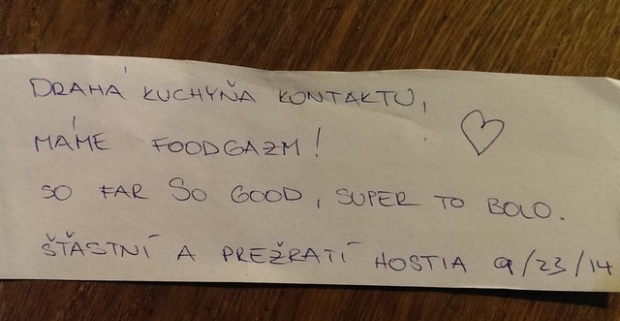 DRAHÁ KUCHYŇA KONTAKTU,
MÁME FOODGAZM!
SO FAR SO GOOD, SUPER TO BOLO.
ŠŤASTNÍ A PREŽRATÍ HOSTIA 9/23/14